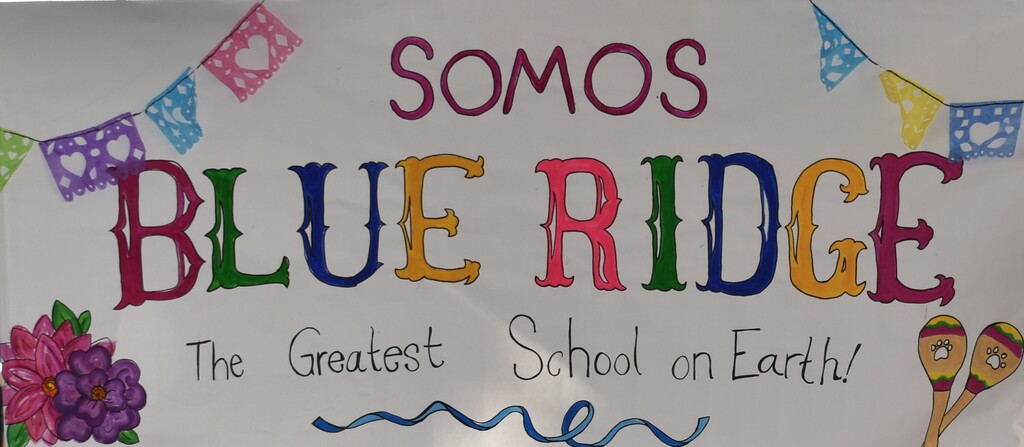 SOMOS
BLUE RIDGE
The Greatest School on Earth!